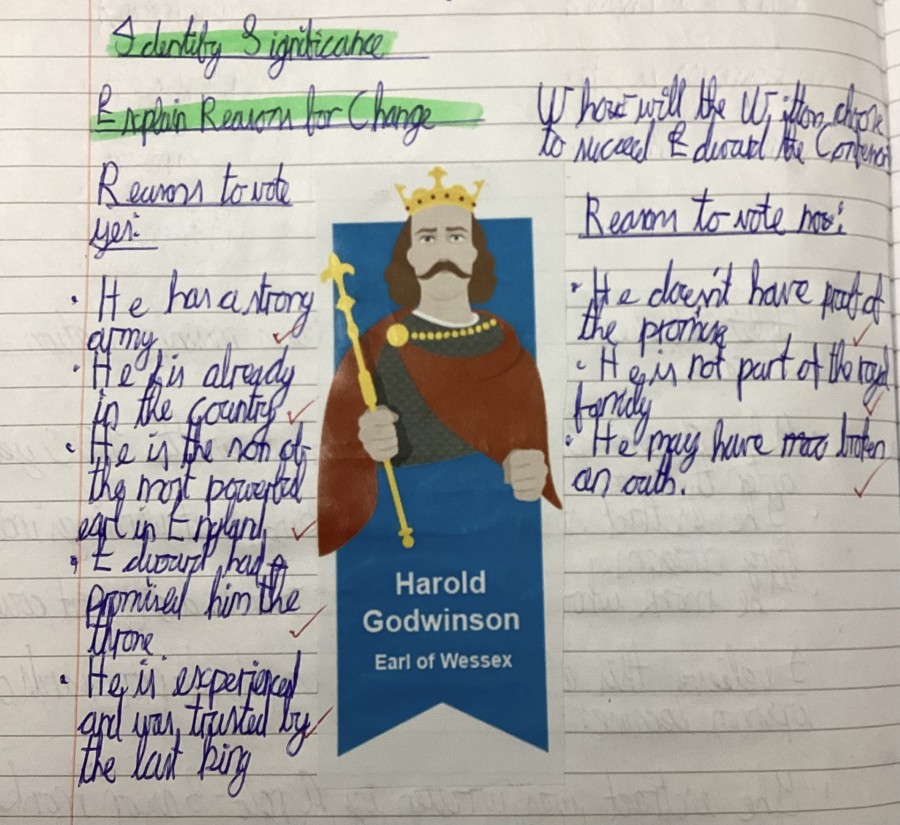 Identify Significance
Explain Reason for Change
Whow will the Witton choose
to succeed Edward the Confessor
Reasons to vote
yes:
• He has a strong
army
• He is already
in the country
• He is the son of
the most powerful
earl in England
• Edward had
promised him the
throne
• He is experienced
and was trusted by
the last king
Harold
Godwinson
Earl of Wessex
Reason to vote no:
• He doesn't have proof of
the promise
• He is not part of the royal
family
• He may have broken
an oath.